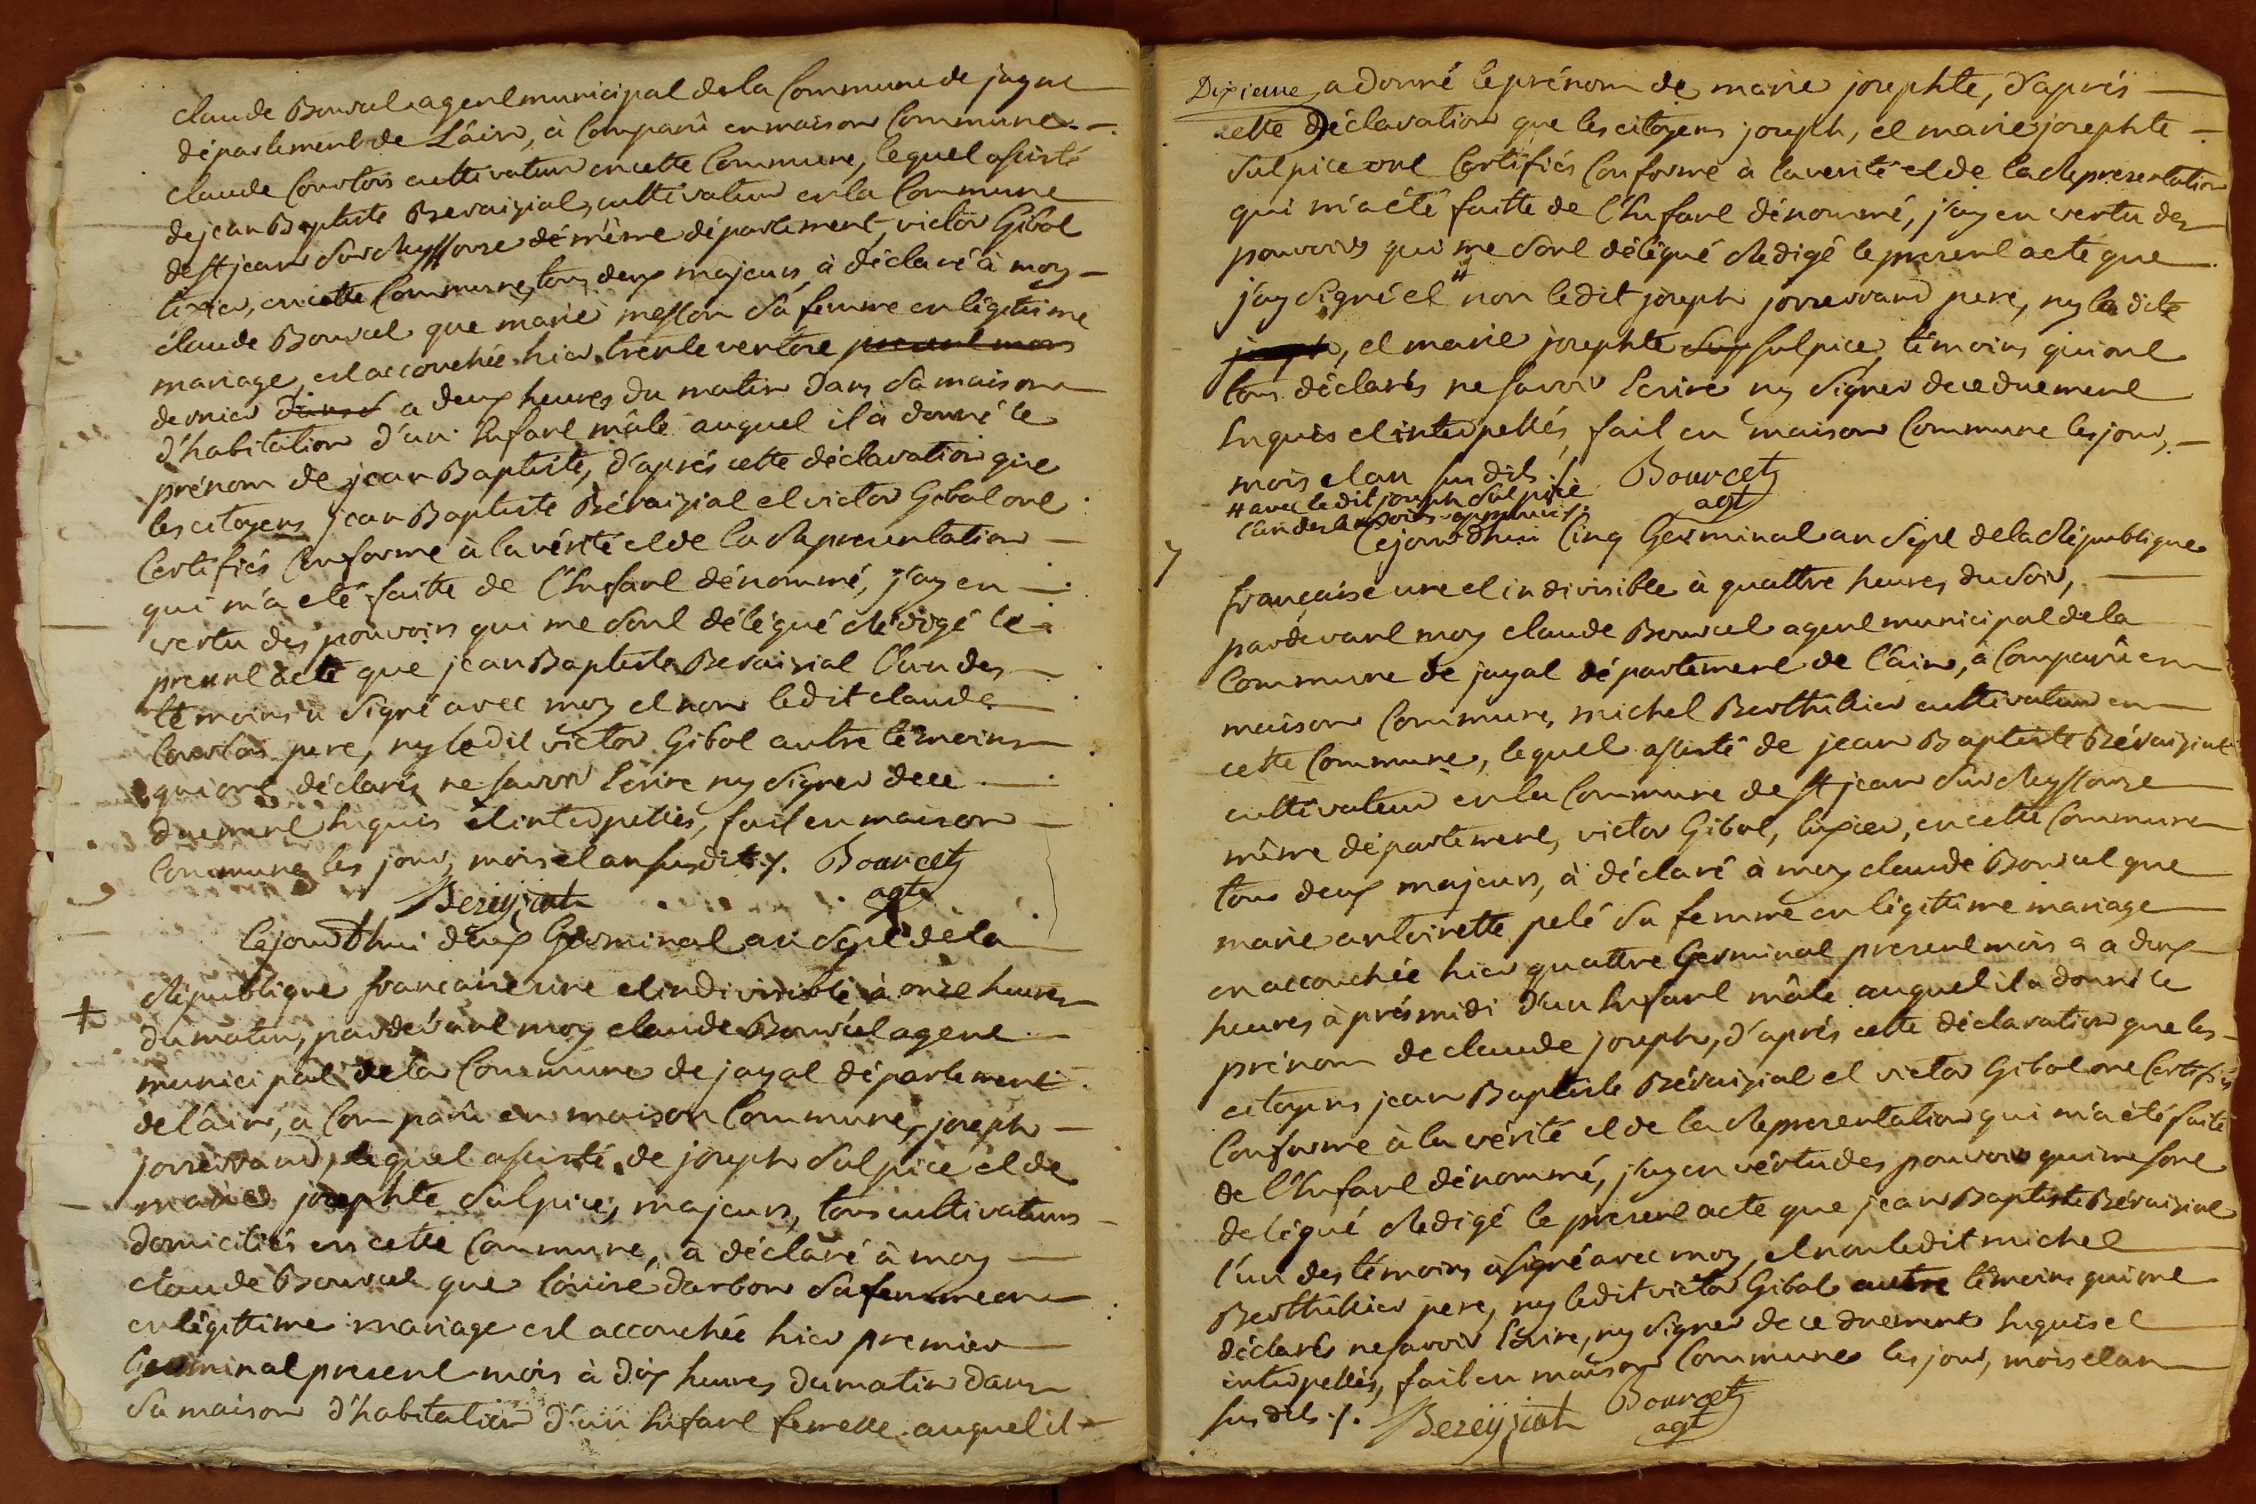 claude Bourcet agent municipal de la Commune de jayat
département de Lâin, à Comparû en maison Commune.
claude Courtois cultivateur en cette Commune, lequel assisté
de jean Baptiste Beraizial, cultivateur en la Commune
de st jean sur Reyssouze dé même département, victor Gibol
tixier, en cette Commune, tous deux majeurs, à déclaré à moy
claude Bourcet que marie messon sa femme en légitime
mariage, est accouchée hier trente ventose present mois
dernier a deux heures du matin dans sa maison
d'habitation d'un Enfant mâle auquel il à donné le
prénom de jean Baptiste, d'aprés cette déclaration que
les citoyens jean Baptiste Béraizial et victor Gibol ont
Certifiés Conforme à la vérité et de la Representation
qui m'a eté faitte de l'Enfant dénommé, j'ay en
vertu des pouvoirs qui me sont délégué Rédigé le
present acte que jean Baptiste Beraizial l'un des
témoins a signé avec moy et non ledit claude
Courtois pere, ny ledit victor Gibol autre témoins
qui ont déclarés ne savoir Ecrire ny signer de ce
duement Enquis et interpellés, fait en maison
Commune les jour, mois et an susdits ./. Bourcet
Bereyziat agt
Cejourd'hui deux Germinal an sept de la
République francaise une et indivisible, à onze heures
du matin, pardevant moy claude Bourcet agent
municipal de la Commune de jayat département
de lâin, a Comparû en maison Commune, joseph
josserrand, lequel assisté de joseph Sulpice et de
marie josephte Sulpice, majeurs, tous cultivateurs
domiciliés en cette Commune, a déclaré à moy
claude Bourcet que darbon sa femme en
en légittime mariage est accouchée hier premier
Germinal present mois à dix heures du matin dans
sa maison d'habitation d'un Enfant femelle auquel il
Dixieme a donné le prénom de marie josephte, d'aprés
cette Déclaration que les citoyens joseph, et marie josephte
Sulpice ont Certifiés Conforme à la verité et de la Representation
qui m'a été faitte de l'Enfant dénommé, j'ay en vertu des
pouvoirs qui me sont délégué Redigé le present acte que
j'ay signé et # non ledit joseph josserrand pere, ny la dite
joseph, et marie josephte Sulpice, témoins qui ont
tous déclarés ne savoir Ecrire ny signer de ce duement
Enquis et interpellés, fait en maison Commune les jour,
mois et an susdits ./. Bourcet
# avec ledit joseph Sulpice agt
l'un des temoins
7 Cejourd'hui Cinq Germinal an Sept de la République
française une et indivisible à quattre heures du soir,
pardevant moy claude Bourcet agent municipal de la
Commune de jayat département de l'âin, à Comparû en
maison Commune, michel Berthillier cultivateur en
cette Commune, lequel assisté de jean Baptiste Béraizial
cultivateur en la Commune de st jean sur Reyssouze
même département, victor Gibol, tixier, en cette Commune
tous deux majeurs, à déclaré à moy claude Bourcet que
marie antoinette pelé sa femme en légittime mariage
en accouchée hier quattre Germinal present mois a a deux
heures à prés midi d'un Enfant mâle auquel il a donné le
prénom de claude joseph, d'aprés cette déclaration que les
citoyens jean Baptiste Béraizial et victor Gibol ont Certifiés
Conforme à la vérité et de la Representation qui m'a été faite
de l'Enfant dénommé, j'ay en vértu des pouvoirs qui me sont
delégué Redigé le present acte que jean Baptiste Béraizial
l'un des témoins à signé avec moy, et non ledit michel
Berthillier pere, ny ledit victor Gibol autre témoins qui ont
déclarés ne savoir Ecrire, ny signer de ce duement Enquis et
interpellés, fait en maison Commune les jour, mois et an
susdits ./. Bereyziat Bourcet
agt